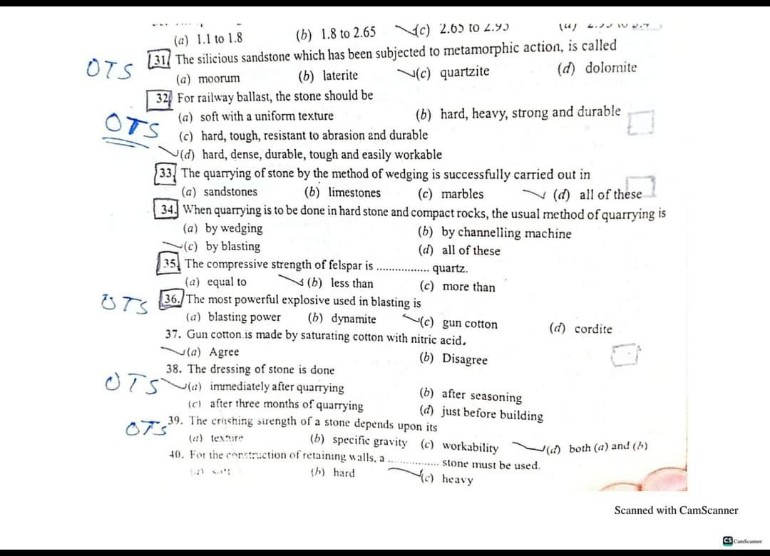 (a) 1.1 to 1.8 (b) 1.8 to 2.65 (c) 2.65 to 2.95
OTS 31. The silicious sandstone which has been subjected to metamorphic action, is called
(a) moorum (b) laterite (c) quartzite (d) dolomite
32. For railway ballast, the stone should be
(a) soft with a uniform texture (b) hard, heavy, strong and durable
OTS (c) hard, tough, resistant to abrasion and durable
(d) hard, dense, durable, tough and easily workable
33. The quarrying of stone by the method of wedging is successfully carried out in
(a) sandstones (b) limestones (c) marbles (d) all of these
34. When quarrying is to be done in hard stone and compact rocks, the usual method of quarrying is
(a) by wedging (b) by channelling machine
(c) by blasting (d) all of these
35. The compressive strength of felspar is ................ quartz.
(a) equal to (b) less than (c) more than
OTS 36. The most powerful explosive used in blasting is
(a) blasting power (b) dynamite (c) gun cotton (d) cordite
37. Gun cotton is made by saturating cotton with nitric acid.
(a) Agree (b) Disagree
38. The dressing of stone is done
OTS (a) immediately after quarrying (b) after seasoning
(c) after three months of quarrying (d) just before building
OTS 39. The crushing strength of a stone depends upon its
(a) texture (b) specific gravity (c) workability (d) both (a) and (b)
40. For the construction of retaining walls, a ................ stone must be used.
(b) hard (c) heavy
Scanned with CamScanner
CS CamScanner